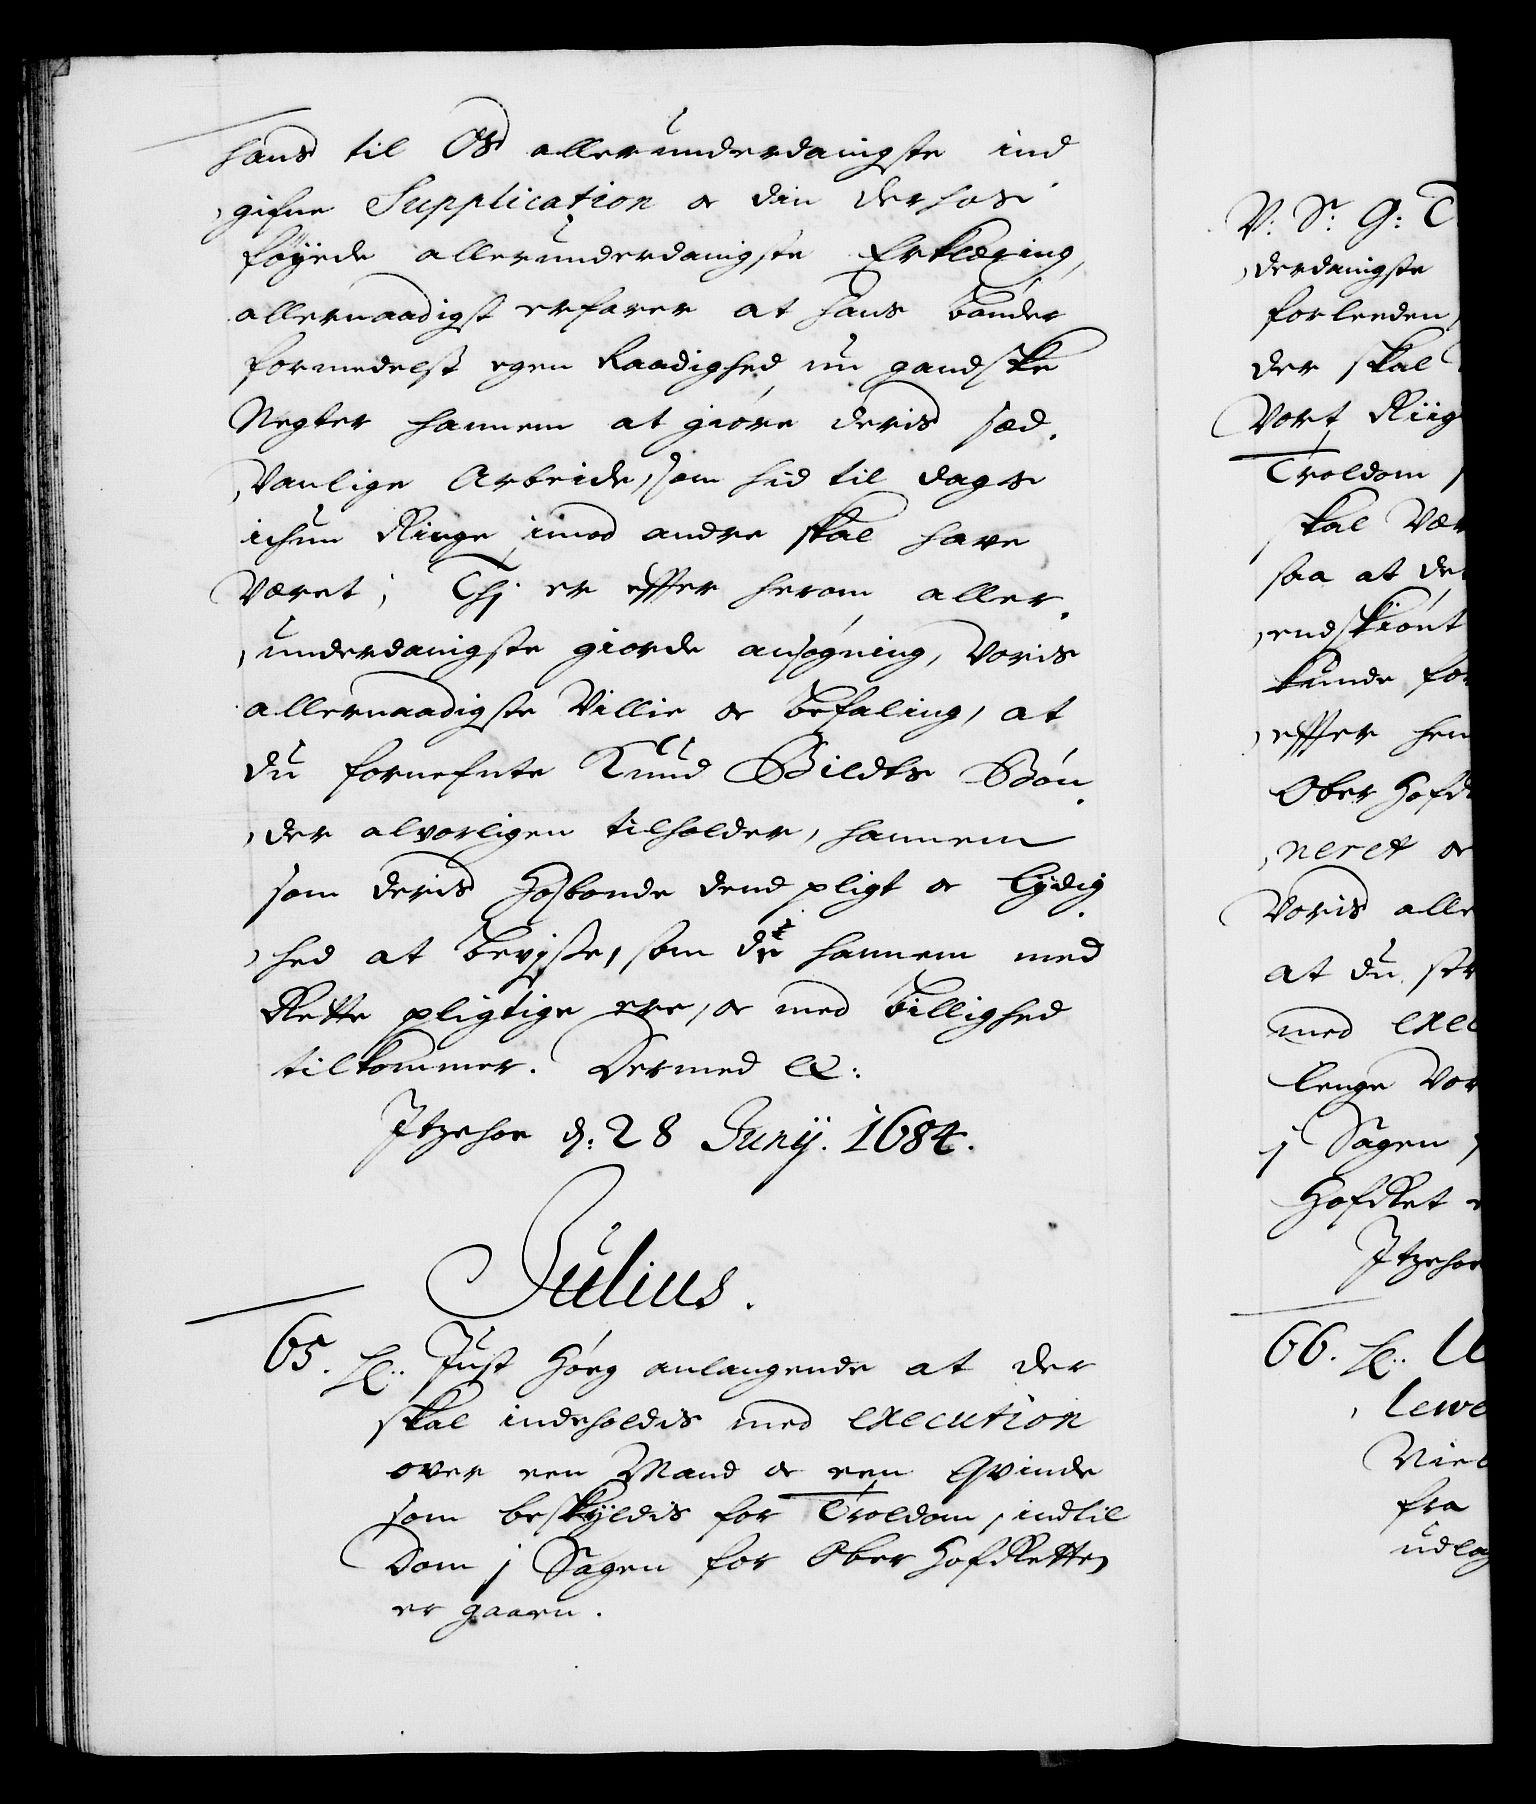 hans til Os allerunderdanigste ind
gifne Supplication oc din derhos
föyede allerunderdanigste Erklæring,
allernaadigst erfarer at hans bönder
formedelst egen Raadighed nu gandske
Negter hannem at giöre deris sæd,
vanlige Arbeide, som hid til dags
ichun Ringe imod andre skal have
Været; Thj er effter herom aller,
underdanigste giorde ansögning, Voris
allernaadigste Villie oc befaling, at
du fornefnte Knud Bildts Bön,
der alvorligen tilholder, hannem
som deris Hosbonde dend pligt oc lydig,
hed at bevjse, som de hannem med
Rette pligtige ere, oc med billighed
tilkommer. Dermed etc:
Itzehoe d: 28 Junÿ. 1684.
Julius.
65. Just Höeg anlangende at der
skal indeholdis med execution
over een Mand oc een Qvinde
som beskyldis for Troldom, indtil
Dom j Sagen for Ober HofRetten
er gaaen.
V: Sr: G: T
derdanigste
forleeden
der skal
Vort Riig
Troldom
skal Vær
saa at de
endskiönt
kunde for
effter hen
Ober Hofd
neret oc
Voris alle
at du
med exec
lenge Vor
j Sagen
HofRet
Itzehoe
66.
lewe
Niel
fra
udlag